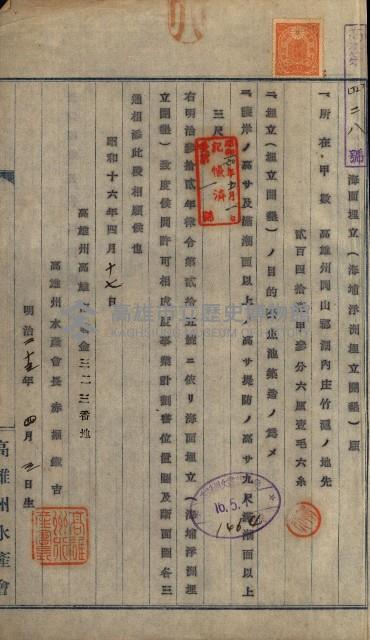 四二八號
海面埋立(海埔浮洲埋立開墾)願
一、所在、甲數 高雄州岡山郡湖內庄竹滬ノ地先
貳百四拾 甲參分六厘壹毛六糸
一、埋立(埋立開墾)ノ目的 魚池築造ノ爲メ
一、護岸ノ高サ及滿潮面以上ノ高サ堤防ノ高サ九尺滿潮面以上
三尺
右明治參拾貳年律令第貳拾五號ニ依リ海面埋立(海埔浮洲埋
立開墾)致度候間許可相成度事業計劃書位置圖及斷面圖各三
通相添此段相願候也
昭和十六年四月十七日
高雄州高雄 金三二三番地
高雄州水產會長 赤 鐵吉
明治二十五年四月 日生
高雄州水產會
記帳濟
16.5.
高雄州水產會
高雄市立歷史博物館
KAOHSIUNG MUSEUM OF HISTORY